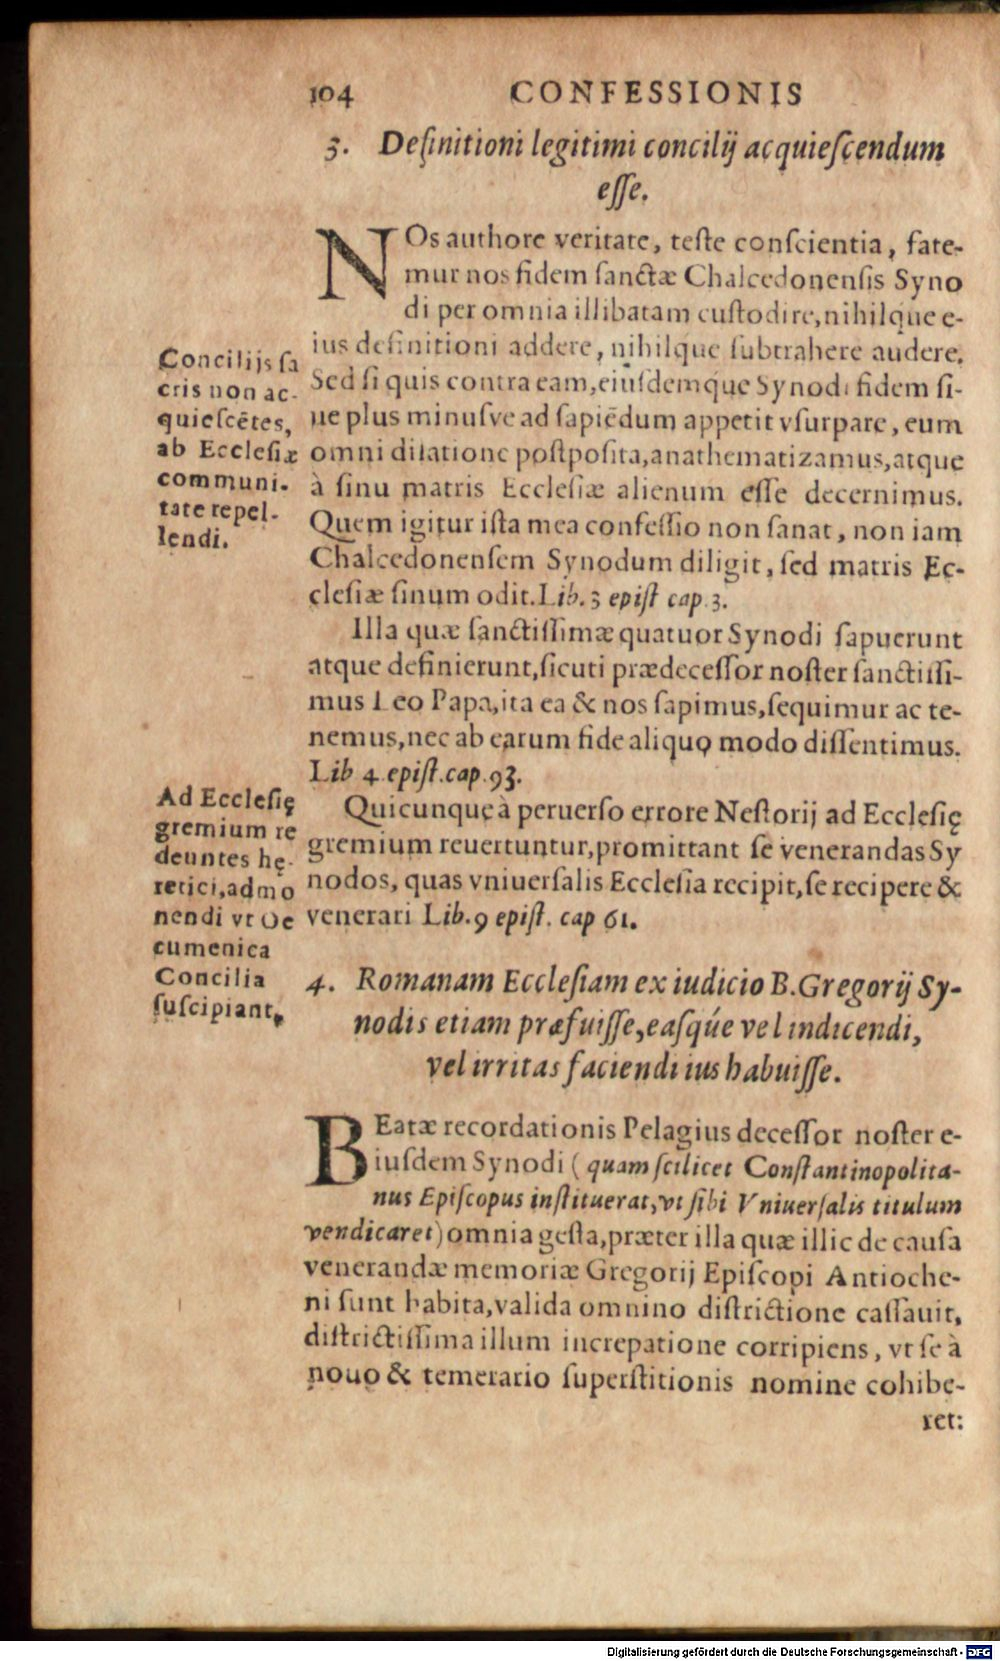 104 CONFESSIONIS
3. Definitioni legitimi concilij acquieſcendum
eſſe.
NOs authore veritate, teſte conſcientia, fate-
mur nos fidem ſanctæ Chalcedonenſis Syno
di per omnia illibatam cuſtodire, nihilque e-
ius definitioni addere, nihilque ſubtrahere audere.
Sed ſi quis contra eam, eiuſdemque Synodi fidem ſi-
ue plus minuſve ad ſapiēdum appetit vſurpare, eum
omni dilatione poſtpoſita, anathematizamus, atque
à ſinu matris Eccleſiæ alienum eſſe decernimus.
Quem igitur iſta mea confeſſio non ſanat, non iam
Chalcedonenſem Synodum diligit, ſed matris Ec-
cleſiæ ſinum odit. Lib. 3 epiſt cap. 3.
Concilijs ſa
cris non ac-
quieſcētes,
ab Eccleſiæ
communi-
tate repel-
lendi.
Illa quæ ſanctiſſimæ quatuor Synodi ſapuerunt
atque definierunt, ſicuti prædeceſſor noſter ſanctiſſi-
mus Leo Papa, ita ea & nos ſapimus, ſequimur ac te-
nemus, nec ab earum fide aliquo modo diſſentimus.
Lib 4 epiſt. cap. 93.
Quicunque à peruerſo errore Neſtorij ad Eccleſię
gremium reuertuntur, promittant ſe venerandas Sy
nodos, quas vniuerſalis Eccleſia recipit, ſe recipere &
venerari Lib. 9 epiſt. cap 61.
Ad Eccleſię
gremium re
deuntes hę-
retici, admo
nendi vt Oe
cumenica
Concilia
ſuſcipiant,
4. Romanam Eccleſiam ex iudicio B. Gregorij Sy-
nodis etiam præfuiſſe, eaſqúe vel indicendi,
vel irritas faciendi ius habuiſſe.
BEatæ recordationis Pelagius deceſſor noſter e-
iuſdem Synodi ( quam ſcilicet Conſtantinopolita-
nus Epiſcopus inſtituerat, vt ſibi Vniuerſalis titulum
vendicaret) omnia geſta, præter illa quæ illic de cauſa
venerandæ memoriæ Gregorij Epiſcopi Antioche-
ni ſunt habita, valida omnino diſtrictione caſſauit,
diſtrictiſſima illum increpatione corripiens, vt ſe à
nouo & temerario ſuperſtitionis nomine cohibe-
ret:
Digitalisierung gefördert durch die Deutsche Forschungsgemeinschaft - DFG